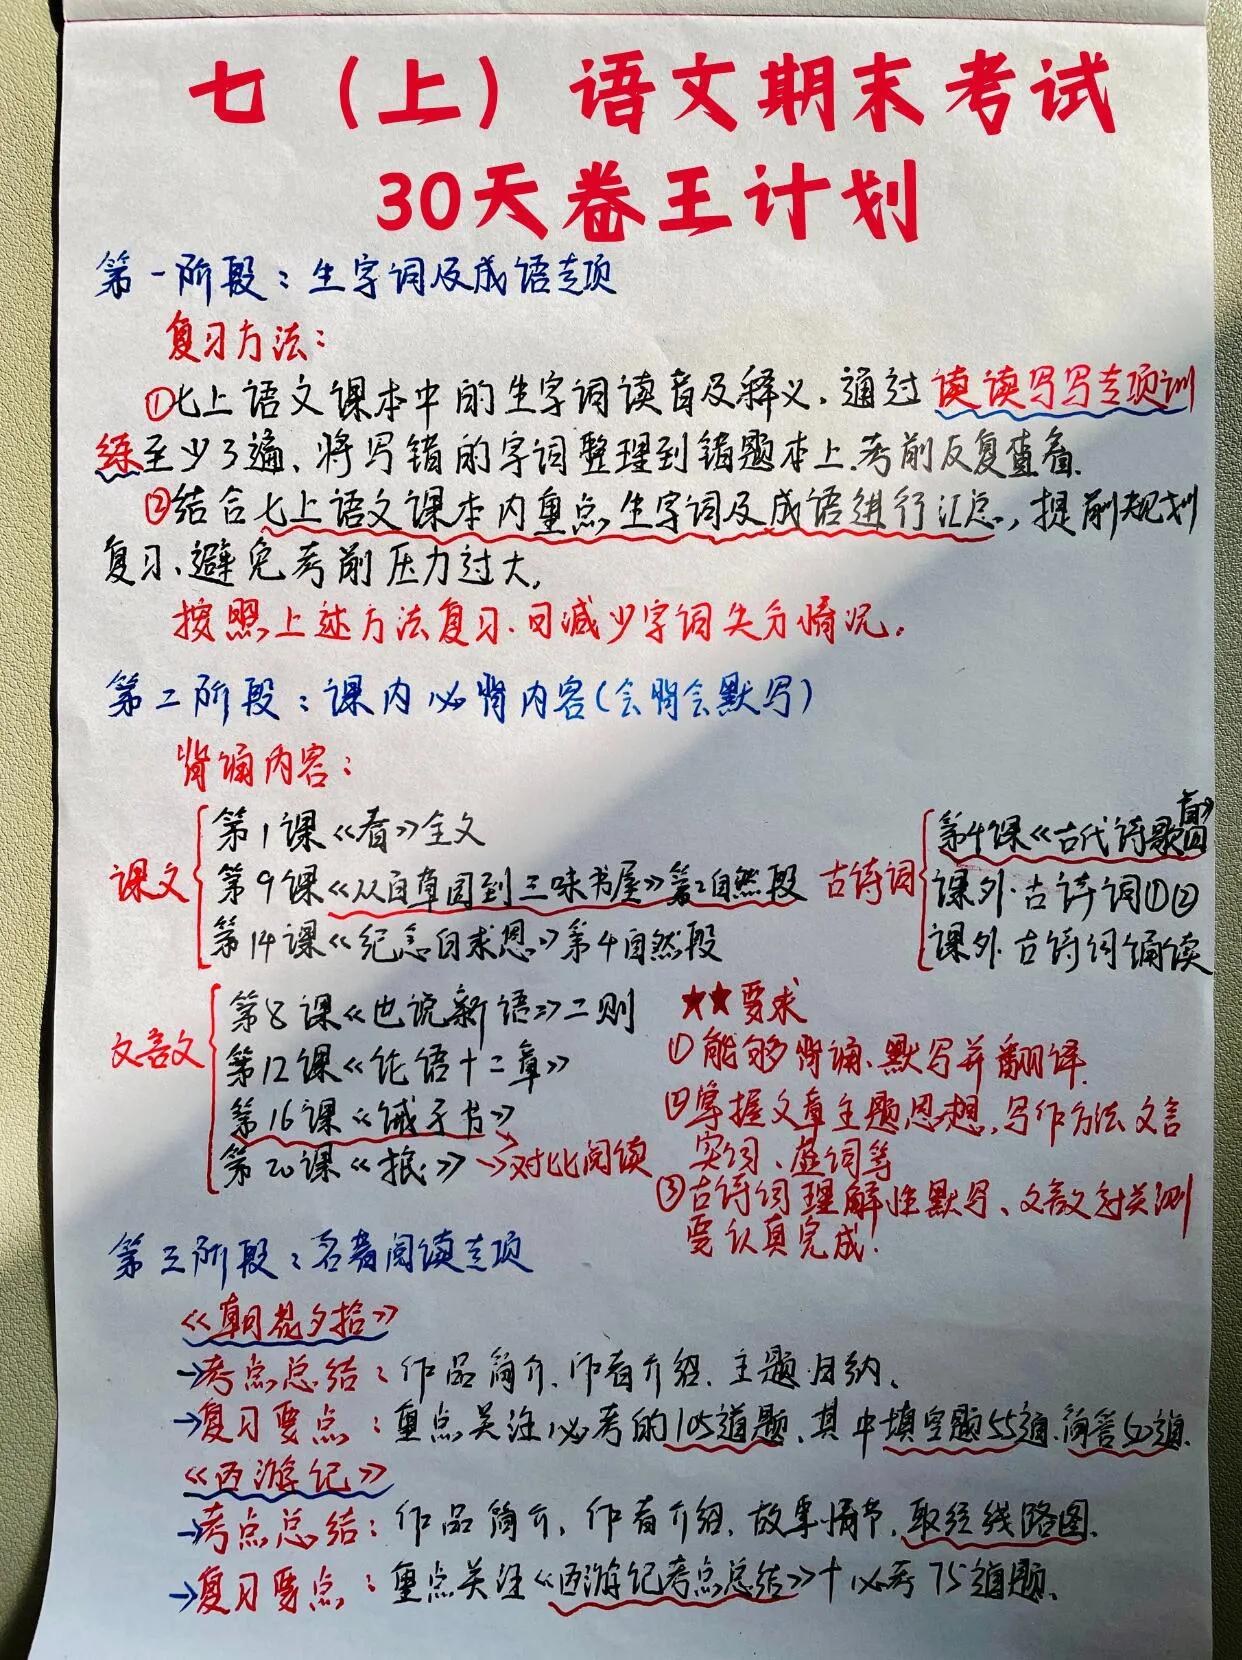 七（上）语文期末考试
30天卷王计划
第一阶段：生字词及成语专项
复习方法：
①七上语文课本中的生字词读音及释义，通过读读写写专项训
练至少3遍、将写错的字词整理到错题本上.考前反复查看.
②结合七上语文课本内重点生字词及成语进行汇总，提前规划
复习、避免考前压力过大，
按照上述方法复习.可减少字词失分情况。
第二阶段：课内必背内容(会背会默写)
背诵内容：
课文
第1课《春》全文
第9课《从百草园到三味书屋》第2自然段
第14课《纪念白求恩》第4自然段
古诗词
第4课《古代诗歌四首》
课外·古诗词①②
课外古诗词诵读
文言文
第8课《世说新语》二则
第12课《论语十二章》
第16课《诫子书》
第20课《狼》→对比阅读
★★要求
①能够背诵、默写并翻译.
②掌握文章主题思想，写作方法文言
实词、虚词等
③古诗词理解性默写、文言文对关测
要认真完成!
第三阶段：名著阅读专项
《朝花夕拾》
→考点总结：作品简介、作者介绍、主题归纳、
→复习要点：重点关注必考的105道题、其中填空题55道、简答50道.
《西游记》
→考点总结：作品简介，作者介绍、故事情节、取经线路图.
→复习要点：重点关注《西游记考点总结》+必考75道题、